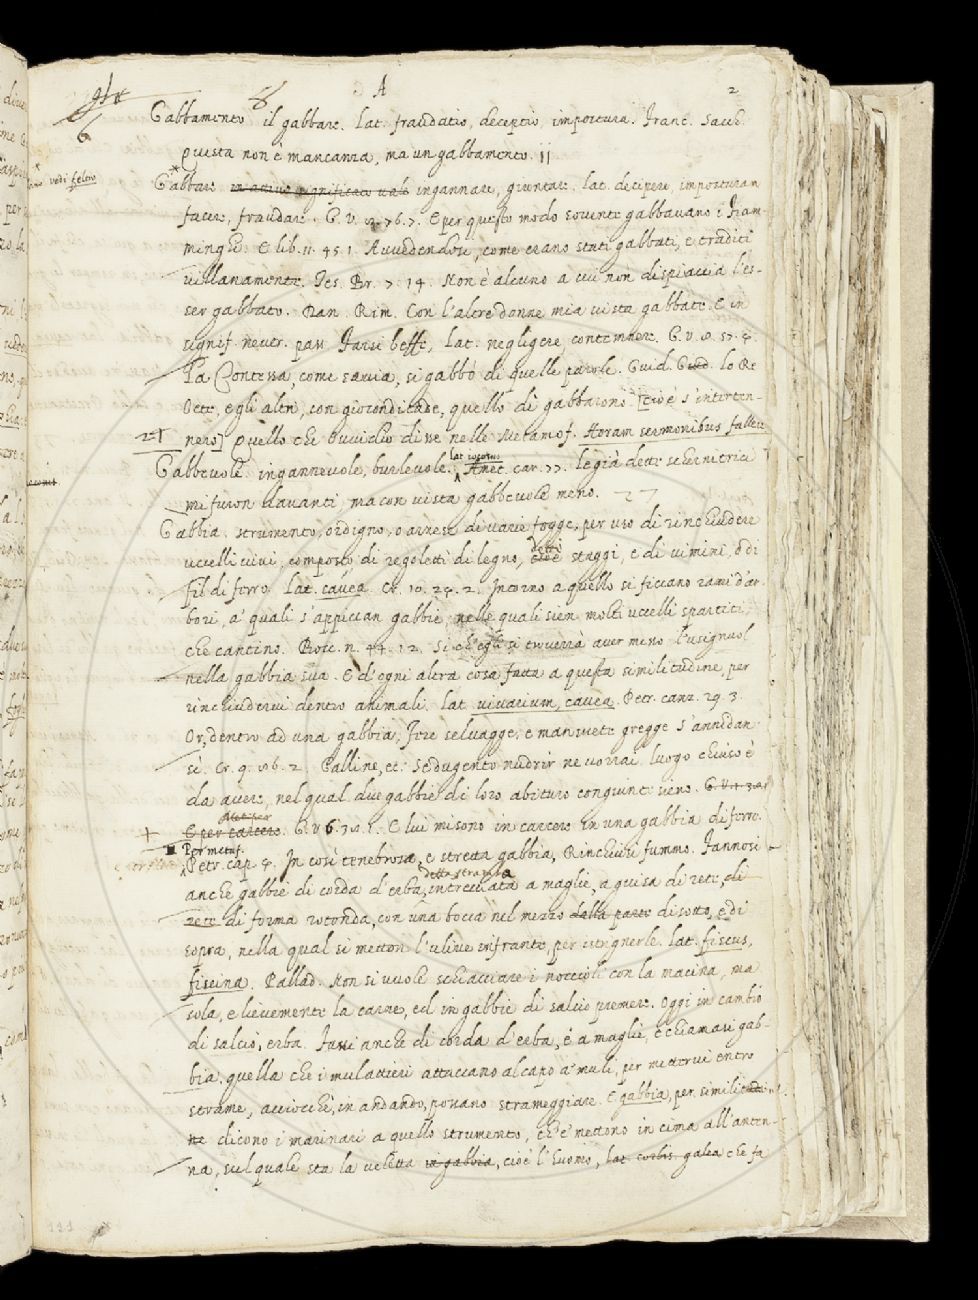 A 2
6
Gabbamento il gabbare. Lat. fraudatio, deceptio, impostura. Franc. Sacch.
questa non è mancanza, ma un gabbamento.
vedi feltro
Gabbare in attivo significato vale ingannare, giuntare. lat. decipere, imposturam
facere, fraudare. G. V. 12. 76. 7. E per questo modo sovente gabbavano i Fiam
minghi. E lib. 11. 45. 1. Avvedendosi, come erano stati gabbati, e traditi
villanamente. Tes. Br. 7. 14. Non è alcuno a cui non dispiaccia l'es-
ser gabbato. Dan. Rim. Con l'altre donne mia vista gabbate. E in
signif. neutr. pass. Farsi beffe, Lat. negligere, contemnere. G. V. 8. 57. 4.
La Contessa, come savia, si gabbò di quelle parole. Guid. Giud. lo Re
Oete, e gli altri, con gioconditade, quello dì gabbarono [cioè s'interten-
nero] Quello che Ovvidio disse nelle Metamof. Horam sermonibus fallere
Gabbevole. ingannevole, burlevole. lat. iocosus Amet. car. 77. le già dette schernitrici
mi furon davanti, ma con vista gabbevole meno. 27
Gabbia. strumento, ordigno, o arnese di varie fogge, per uso di rinchiudere
uccelli vivi, composto di regoletti di legno, cioè detti staggi, e di vimini, o di
fil di ferro. Lat. cavea. Cr. 10. 24. 2. Intorno a quello si ficcano rami d'ar-
bori, a' quali s'appiccan gabbie, nelle quali sien molti uccelli spartiti,
che cantino. Bocc. n. 44. 12. Si ch'egli si troverrà aver messo l'usignuol
nella gabbia sua. E d'ogni altra cosa fatta a questa similitudine, per
rinchiudervi dentro animali. Lat. vivarium, cavea. Petr. canz. 29. 3.
Or, dentro ad una gabbia, Fiere selvagge, e mansuete gregge S'annidan
sì. Cr. 9. 86. 2. Galline, ec. Se dugento nudrir ne vorrai luogo chiuso è
da avere, nel qual due gabbie di loro abituro congiunte sieno. G. V.
E per carcere. G. V. 6. E lui misono in carcere in una gabbia di ferro.
Per metaf.
Petr. cap. 4. In così tenebrosa, e stretta gabbia, Rinchiusi fummo. Fannosi
anche gabbie di corda d'erba, detta stramba intrecciata a maglie, a guisa di rete, di
rete di forma rotonda, con una bocca nel mezzo dalla parte di sotto, e di
sopra, nella qual si metton l'ulive infrante, per istrignerle. Lat. fiscus,
fiscina. Pallad. Non si vuole schiacciare i noccioli con la macina, ma
sola, e lievemente la carne, ed in gabbie di salcio premere. Oggi in cambio
di salcio, erba. Fassi anche di corda d'erba, e a maglie, e chiamasi gab-
bia, quella che i mulattieri attaccano al capo a' muli, per mettervi entro
strame, acciocchè, in andando, possano strameggiare. E gabbia, per similitudi-
ne dicono i marinari a quello strumento, ch'e' mettono in cima all'anten-
na, sul quale sta la veletta in gabbia, cioè l'huomo, lat. corbis. galea che fa